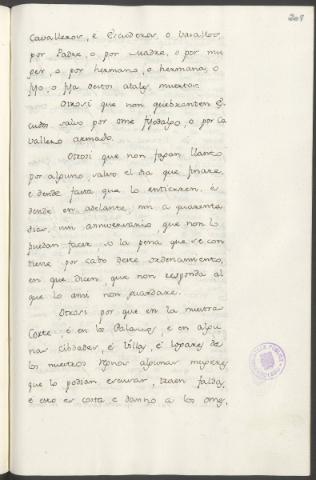 209
Cavalleros, e Escuderos, o vasallos,
por Padre, o, por Madre, o por mu
ger, o por hermano, o hermana, o
fijo, o fija destos atales muertos.
Otrosi que non quebranten Es
cudos salvo por ome fijodalgo, o por Ca
vallero armado.
Otrosi que non fagan llanto
por alguno, salvo el dia que finare,
e dende fasta que lo entierren, e
dende en adelante, nin a quarenta
dias, nin anniversario que non lo
puedan facer so la pena que se con
tiene por cabo deste ordenamiento,
en que dicen, que non responda al
que lo ansi non guardare.
Otrosi por que en la nuestra
Corte e en los Palacios, e en algu
nas cibdades, e Villas, e logares de
los nuestros Regnos algunas mugeres
que lo podian escusar, traen faldas,
e esto es costa e danno a los omes,